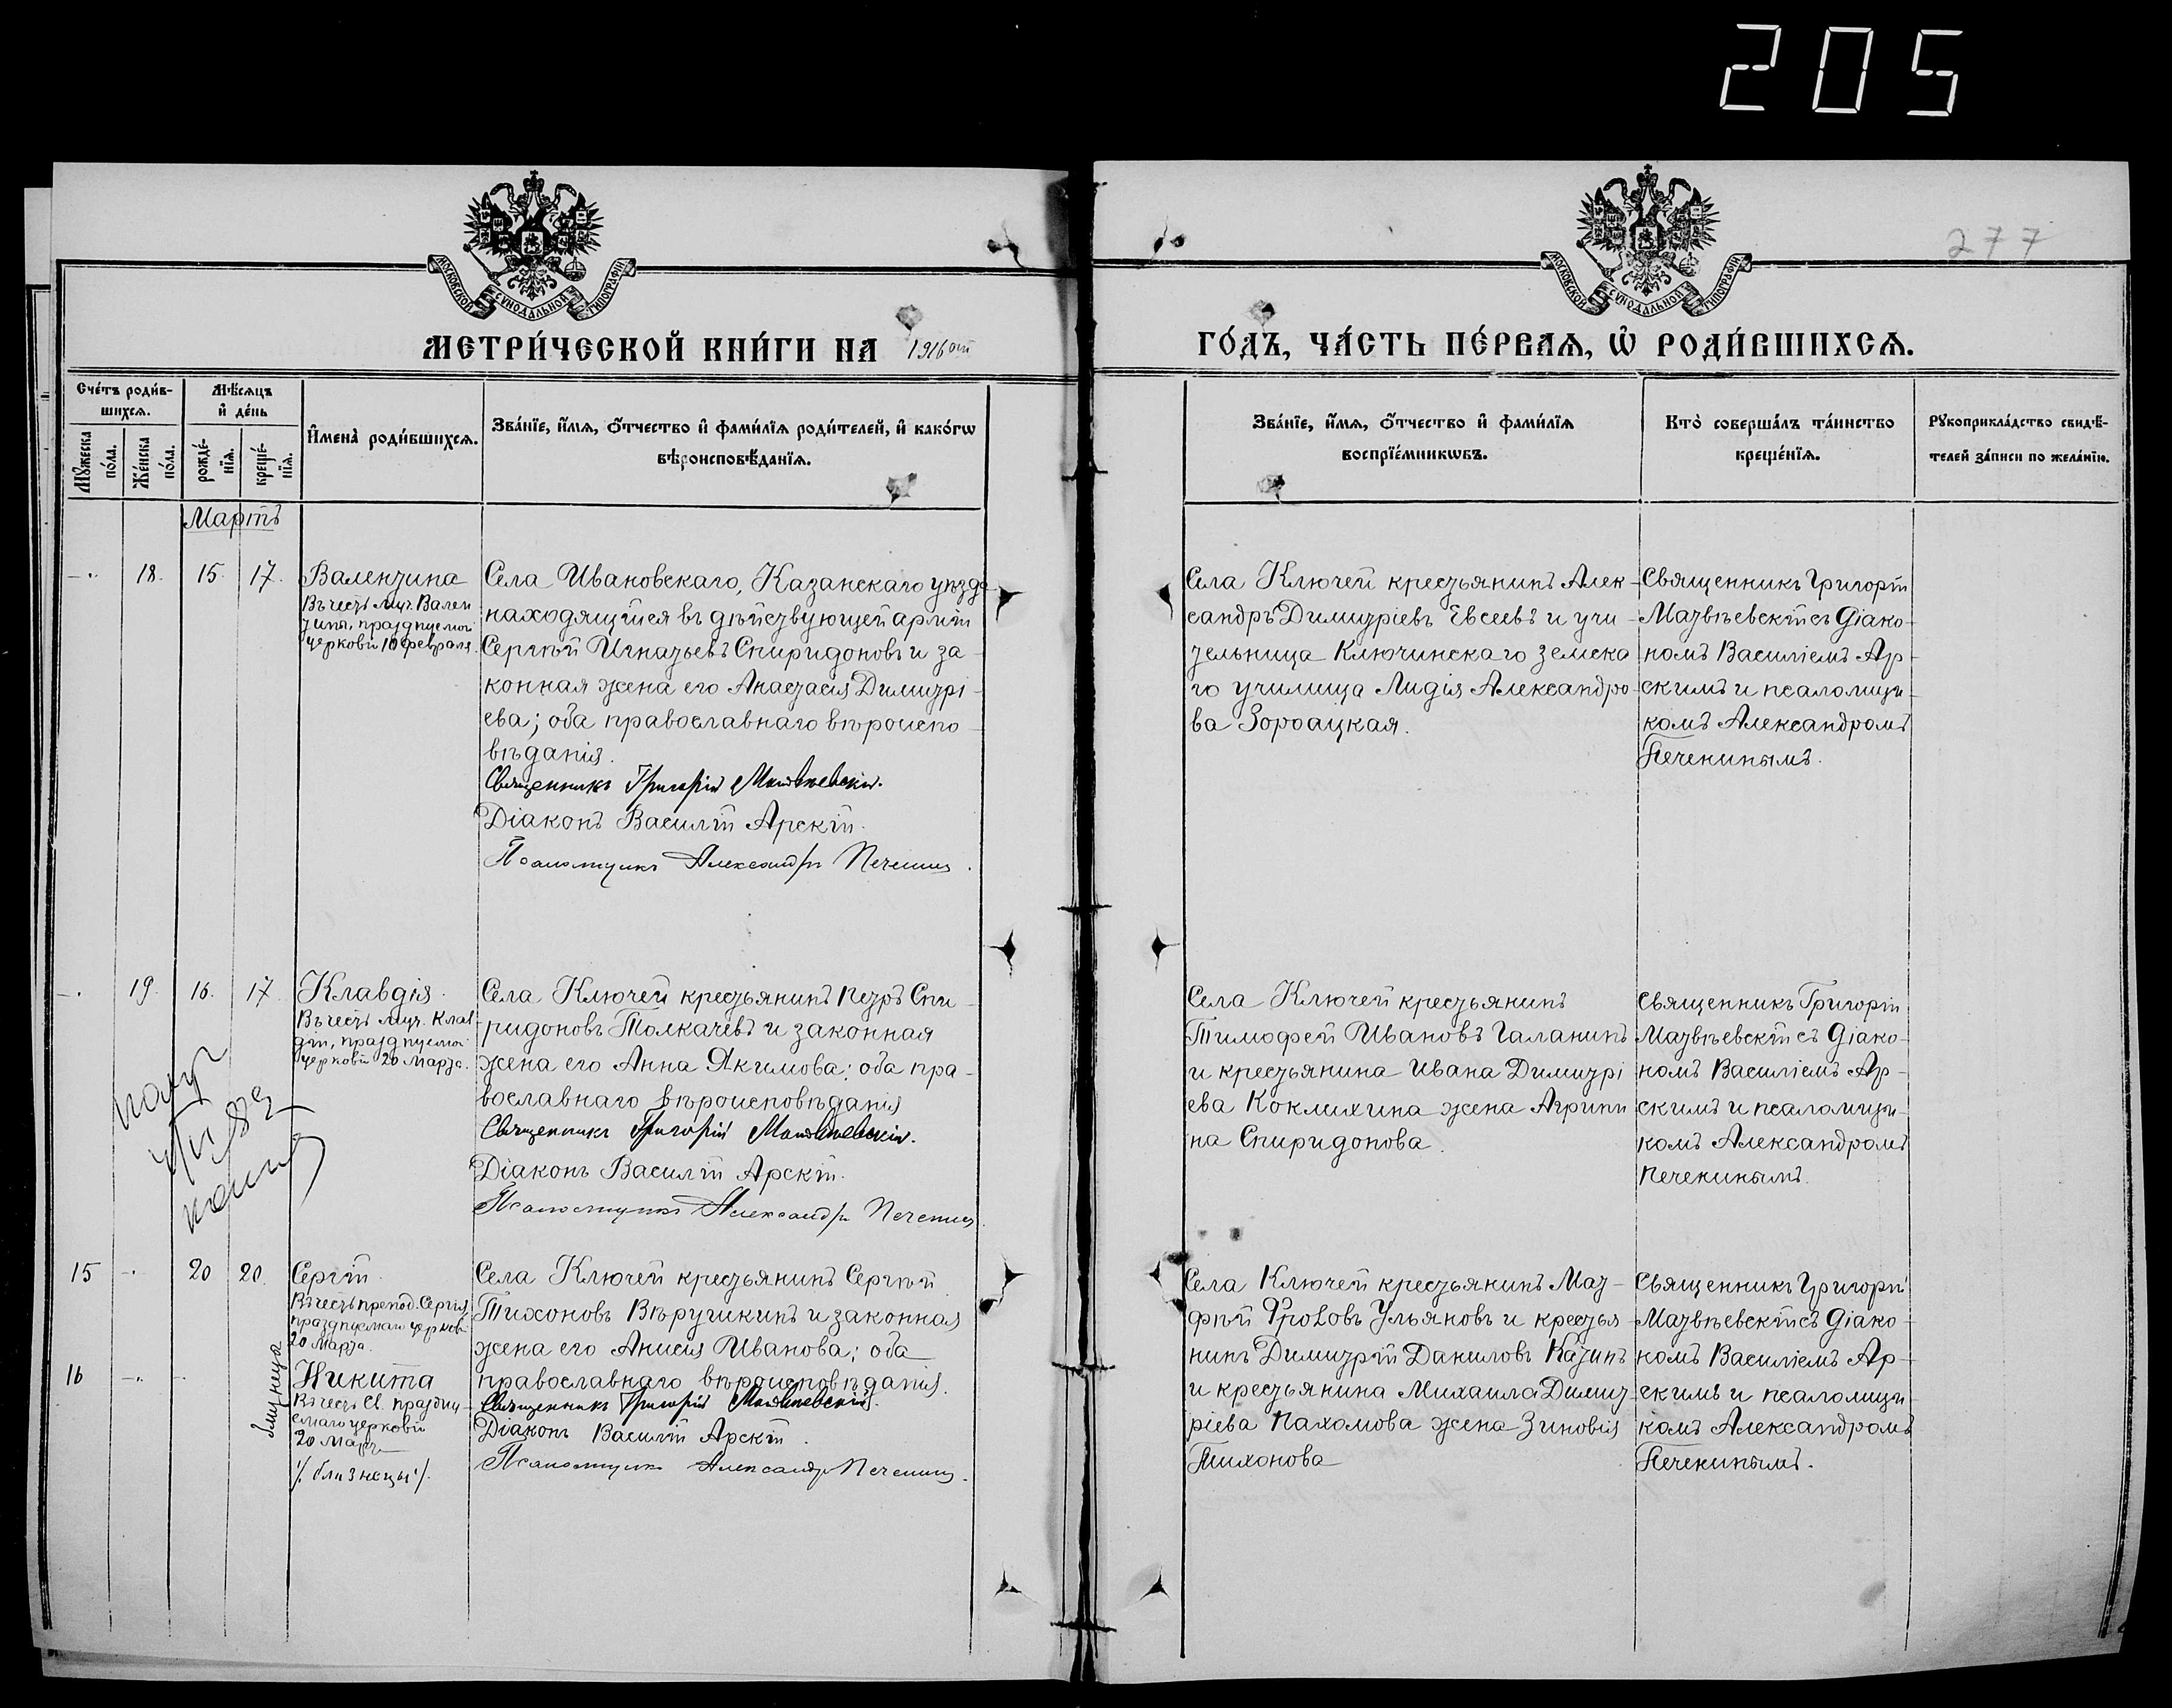 205
277
МОСКОВСКОЙ СѴНОДАЛЬНОЙ ТИПОГРАФІИ
МОСКОВСКОЙ СѴНОДАЛЬНОЙ ТИПОГРАФІИ
МЕТРИ́ЧЕСКОЙ КНИ́ГИ НА 1916 ой ГО́ДЪ, ЧА́СТЬ ПЕ́РВАѦ, Ѡ҆ РОДИ́ВШИХСѦ.
Сче́тъ роди́в-
шихсѧ.
Мꙋ́жеска
по́ла.
Же́нска
по́ла.
Мѣ́сѧцъ
и҆ де́нь
рожде́-
нїѧ.
креще́-
нїѧ.
И҆мена̀ роди́вшихсѧ.
Зва́нїе, и҆́мѧ, ѻ҆́тчество и҆ фами́лїѧ роди́телей, и҆ како́гѡ
вѣроисповѣ́данїѧ.
Зва́нїе, и҆́мѧ, ѻ҆́тчество и҆ фами́лїѧ
воспрїе́мникѡвъ.
Кто̀ соверша́лъ та́инство
креще́нїѧ.
Рꙋкоприкла́дство свидѣ́-
телей за́писи по жела́нїю.
Мартъ
–. 18. 15. 17.
Валентина
Въ честь муч. Вален
тины, празднуемой
церковiю 10 февраля.
Села Ивановскаго, Казанскаго уѣзда
находящiйся въ дѣйствующей армiи
Сергѣй Игнатьевъ Спиридоновъ и за-
конная жена его Анастасiя Димитрi-
ева; оба православнаго вѣроиспо-
вѣданiя.
Священникъ Григорiй Матвѣевскiй.
Дiаконъ Василiй Арскiй.
Псаломщикъ Александръ Печенинъ.
Села Ключей крестьянинъ Алек-
сандръ Димитрiевъ Евсеевъ и учи-
тельница Ключинскаго земска
го училища Лидiя Александро-
ва Зороацкая.
Священникъ Григорiй
Матвѣевскiй съ дiако-
номъ Василiемъ Ар-
скимъ и псаломщи-
комъ Александромъ
Печенинымъ.
–. 19. 16. 17.
Клавдiя.
Въ честь муч. Клав
дiи, празднуемой
церковiю 20 Марта.
Села Ключей крестьянинъ Петръ Спи-
ридоновъ Толкачевъ и законная
жена его Анна Якимова; оба пра-
вославнаго вѣроисповѣданiя
Священникъ Григорiй Матвѣевскiй.
Дiаконъ Василiй Арскiй.
Псаломщикъ Александръ Печенинъ.
Села Ключей крестьянинъ
Тимофей Ивановъ Галанинъ
и крестьянина Ивана Димитрi
ева Коклихина жена Агрипи
на Спиридонова.
Священникъ Григорiй
Матвѣевскiй съ дiако-
номъ Василiемъ Ар-
скимъ и псаломщи-
комъ Александромъ
Печенинымъ.
15 –. 20 20.
Сергiй.
Въ честь препод. Сергiя,
празднуемаго церков.
20 Марта.
16 –. –.
Никита
Въ честь Св. праздну-
емаго церковiю
20 Марта
/. близнецы ./.
Села Ключей крестьянинъ Сергѣй
Тихоновъ Вѣрушкинъ и законная
жена его Анисiя Иванова; оба
православнаго вѣроисповѣданiя.
Священникъ Григорiй Матвѣевскiй.
Дiаконъ Василiй Арскiй.
Псаломщикъ Александръ Печенинъ.
Села Ключей крестьянинъ Мат-
фѣй Фроловъ Ульяновъ и крестья-
нинъ Димитрiй Даниловъ Казинъ
и крестьянина Михаила Димит-
рiева Пахомова жена Зиновiя
Тихонова
Священникъ Григорiй
Матвѣевскiй съ дiако-
номъ Василiемъ Ар-
скимъ и псаломщи-
комъ Александромъ
Печенинымъ.